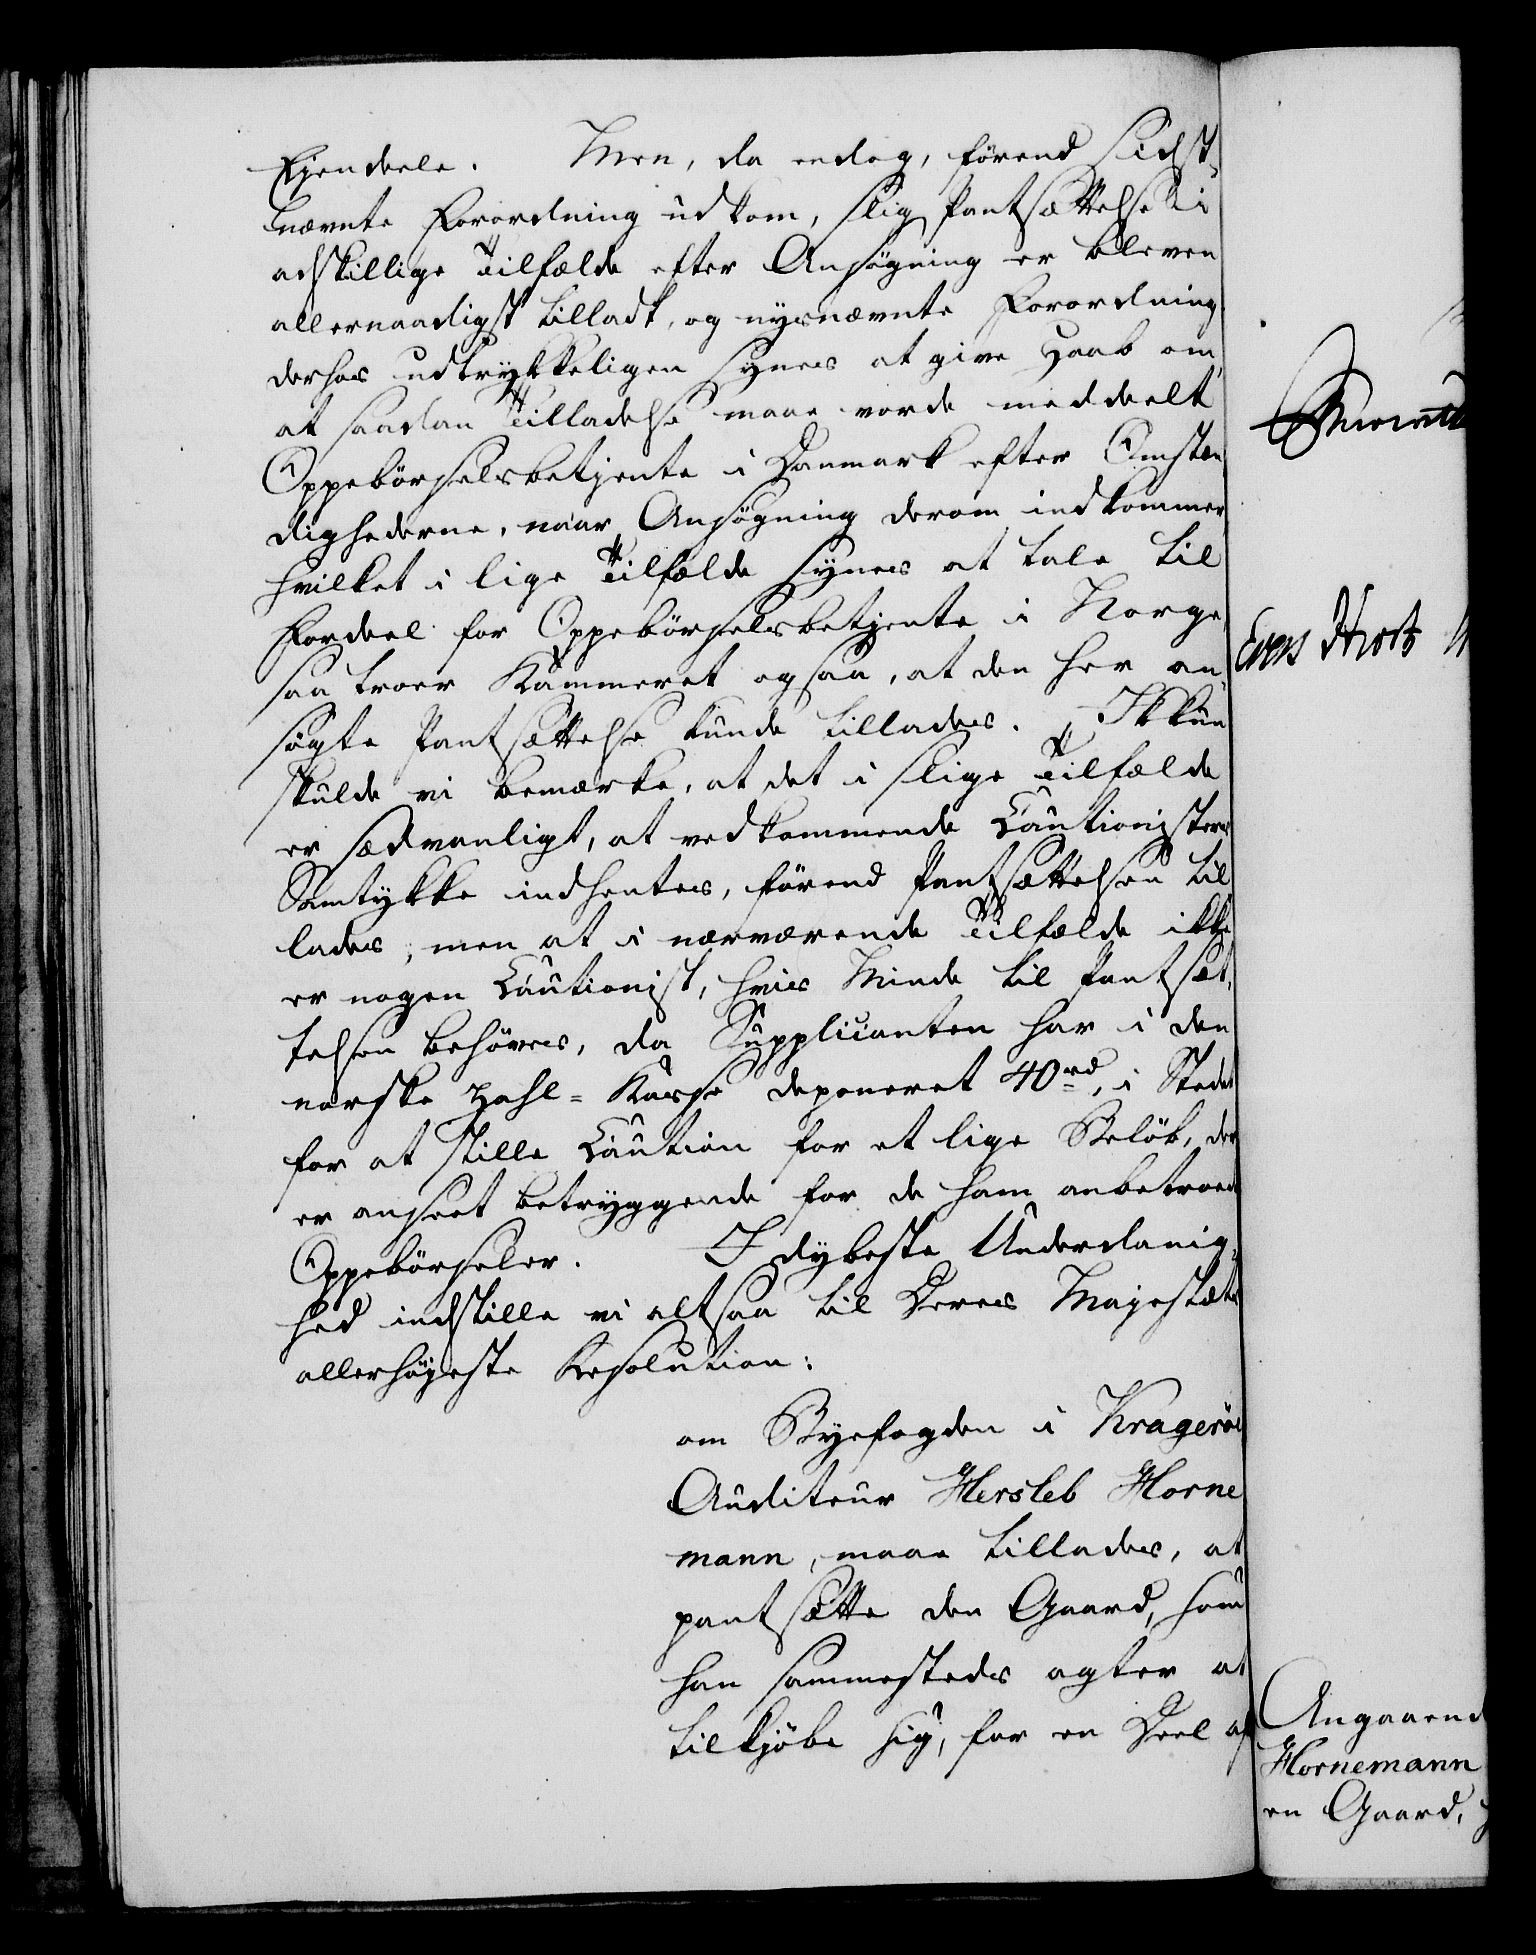 Ejendeele. Men, da endog, førend sidst-
nævnte Forordning udkom, slig Pantsættelse i
adskillige Tilfælde efter Ansøgning er bleven
allernaadigst tilladt, og nysnævnte Forordning
derhos udtrykkeligen synes at give Haab om
at saadan Tilladelse maae vorde meddeelt
Oppebörselsbetjente i Danmark efter Omstæn
dighederne, naar Ansøgning derom indkommer
hvilket i lige Tilfælde synes at tale til
Fordeel for Oppebörselsbetjente i Norge,
saa troer Kammeret ogsaa, at den her an-
søgte Pantsættelse kunde tillades. Ikkun
skulde vi bemærke, at det i slige Tilfælde
er sædvanligt, at vedkommende Cautionisters
Samtykke indhentes, førend Pantsættelsen til
lades, men at i nærværende Tilfælde ikke
er nogen Cautionist, hvis Minde til Pantsæt-
telsen behöves, da Supplicanten har i den
norske Zahl-Kasse deponeret 40 rd, i Stedet
for at stille Caution for et lige Belöb, der
er anseet betryggende for de ham anbetroede
Oppebörseler. I dybeste Underdanig-
hed indstille vi altsaa til Deres Majestæts
allerhöjeste Resolution:
om Byefogden i Krageröe
Auditeur Hersleb Horne
mann, maae tillades, at
pantsætte den Gaard, som
han sammesteds agter at
tilkjöbe sig, for en Deel af
Evers Hirtz
Angaaend
Hornemann
en Gaard,